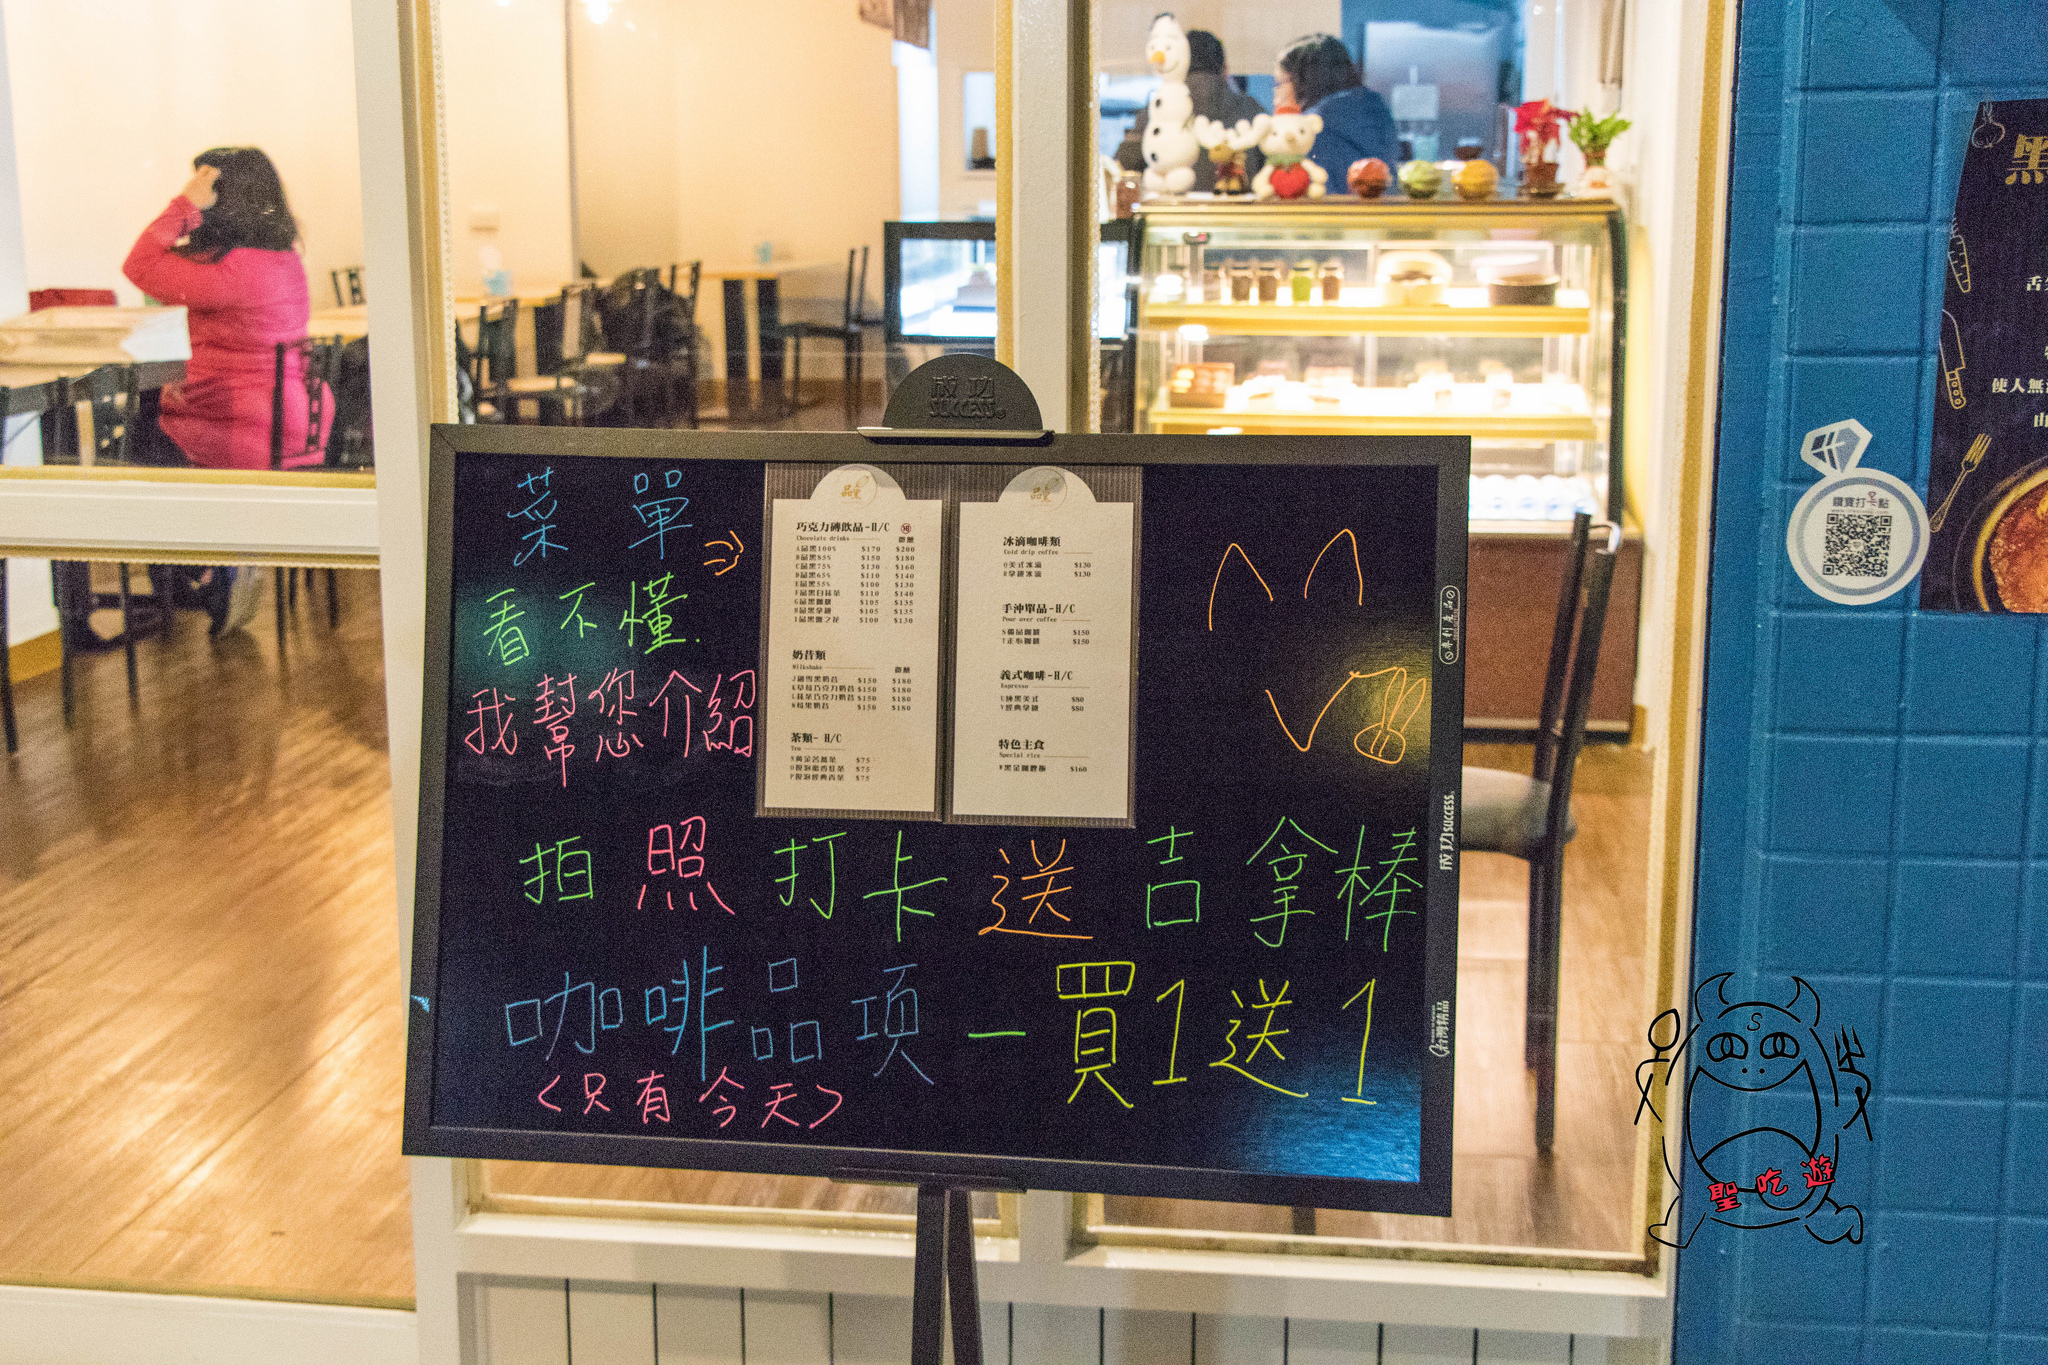 成功
SUCCESS
菜單
看不懂.
我幫您介紹
品黑
巧克力磚飲品-H/C
Chocolate drinks 微糖
A品黑100% $170 $200
B品黑85% $150 $180
C品黑75% $130 $160
D品黑65% $110 $140
E品黑55% $100 $130
F品黑白抹茶 $110 $140
G品黑咖啡 $105 $135
H品黑拿鐵 $105 $135
I品黑鹽之花 $100 $130
奶昔類
Milkshake 微糖
$150 $180
K草莓巧克力奶昔 $150 $180
L抹茶巧克力奶昔 $150 $180
$150 $180
茶類- H/C
Tea
$75
$75
$75
品黑
冰滴咖啡類
Cold drip coffee
Q美式冰滴 $130
R拿鐵冰滴 $130
手沖單品-H/C
Pour over coffee
$150
$150
義式咖啡-H/C
Espresso
U純黑美式 $80
V經典拿鐵 $80
特色主食
Special rice
$160
拍照打卡送吉拿棒
咖啡品項-買1送1
<只有今天>
專利産品
成功SUCCESS
台灣精品
黑
使人無
鑽寶打卡點
S
聖吃遊